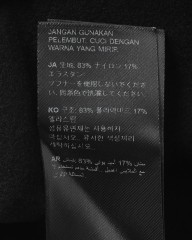 JANGAN GUNAKAN
PELEMBUT. CUCI DENGAN
WARNA YANG MIRIP.
JA 生地: 83% ナイロン 17%
エラスタン
ソフナーを使用しないでくださ
い。同系色で洗濯してください。
KO 구조: 83% 폴리아미드 17%
엘라스틴
섬유유연제는 사용하지
마십시오. 유사한 색상끼리
세탁하십시오
AR 83% 17%